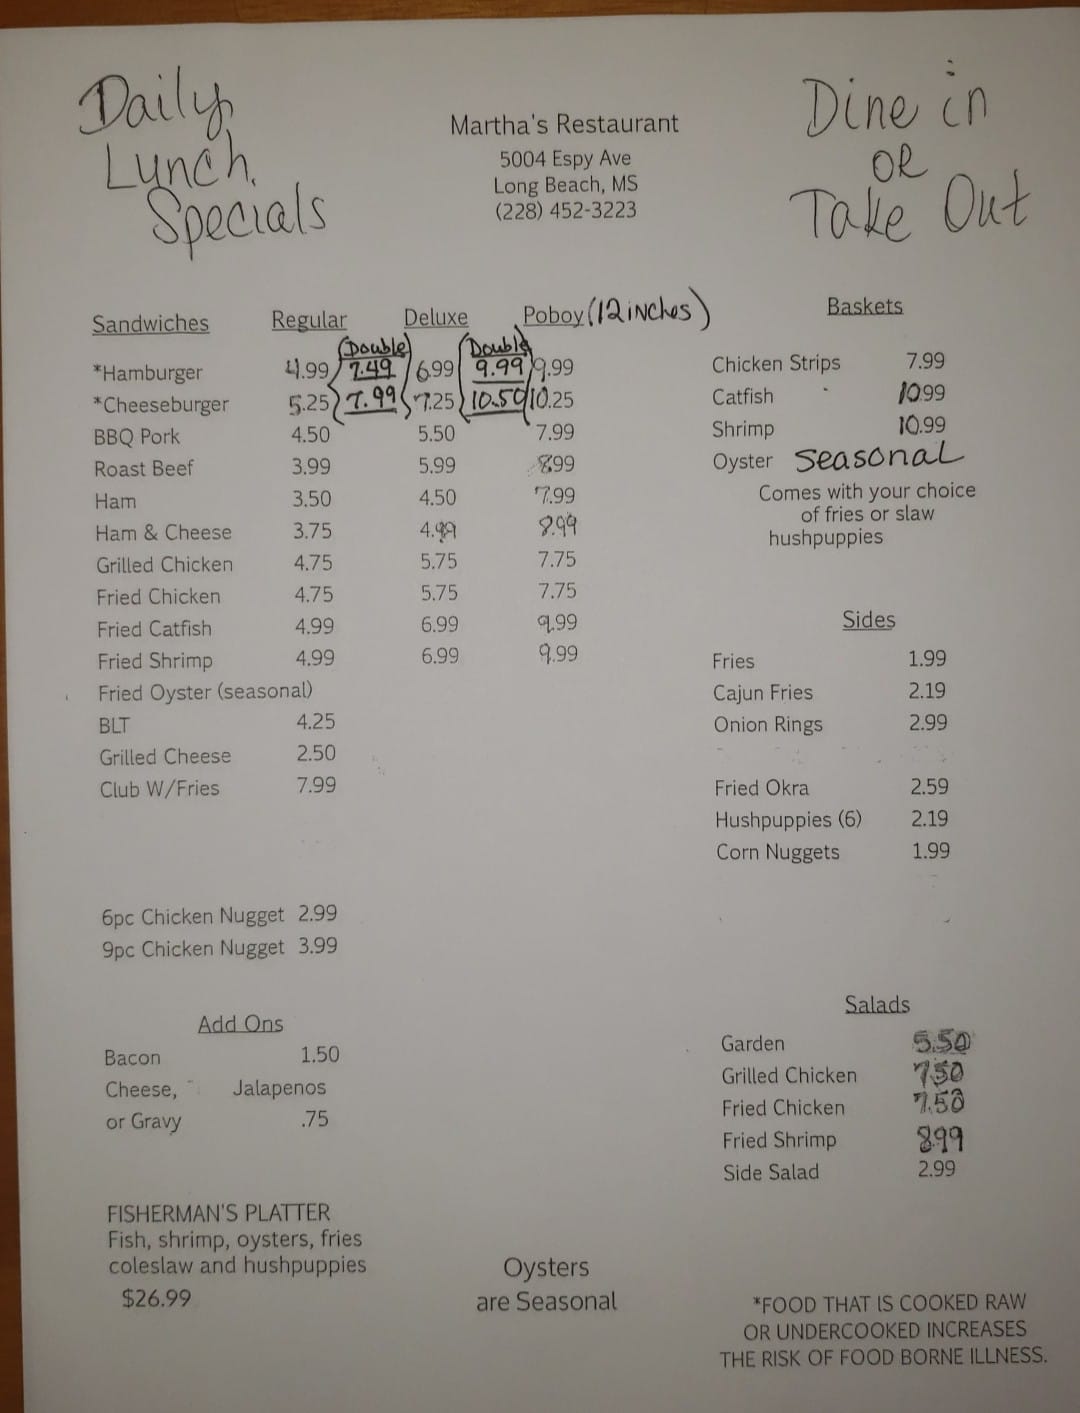 Daily
Lunch
Specials
Martha's Restaurant
5004 Espy Ave
Long Beach, MS
(228) 452-3223
Dine in
OR
Take Out
Sandwiches Regular Deluxe Poboy (12 inches)
(Double) (Double)
*Hamburger 4.99 7.49 6.99 9.99 9.99
*Cheeseburger 5.25 7.99 7.25 10.50 10.25
BBQ Pork 4.50 5.50 7.99
Roast Beef 3.99 5.99 8.99
Ham 3.50 4.50 7.99
Ham & Cheese 3.75 4.99 8.99
Grilled Chicken 4.75 5.75 7.75
Fried Chicken 4.75 5.75 7.75
Fried Catfish 4.99 6.99 9.99
Fried Shrimp 4.99 6.99 9.99
Fried Oyster (seasonal)
BLT 4.25
Grilled Cheese 2.50
Club W/Fries 7.99
6pc Chicken Nugget 2.99
9pc Chicken Nugget 3.99
Add Ons
Bacon 1.50
Cheese, Jalapenos
or Gravy .75
FISHERMAN'S PLATTER
Fish, shrimp, oysters, fries
coleslaw and hushpuppies
$26.99
Baskets
Chicken Strips 7.99
Catfish 10.99
Shrimp 10.99
Oyster Seasonal
Comes with your choice
of fries or slaw
hushpuppies
Sides
Fries 1.99
Cajun Fries 2.19
Onion Rings 2.99
Fried Okra 2.59
Hushpuppies (6) 2.19
Corn Nuggets 1.99
Salads
Garden 5.50
Grilled Chicken 7.50
Fried Chicken 7.50
Fried Shrimp 8.99
Side Salad 2.99
Oysters
are Seasonal
*FOOD THAT IS COOKED RAW
OR UNDERCOOKED INCREASES
THE RISK OF FOOD BORNE ILLNESS.